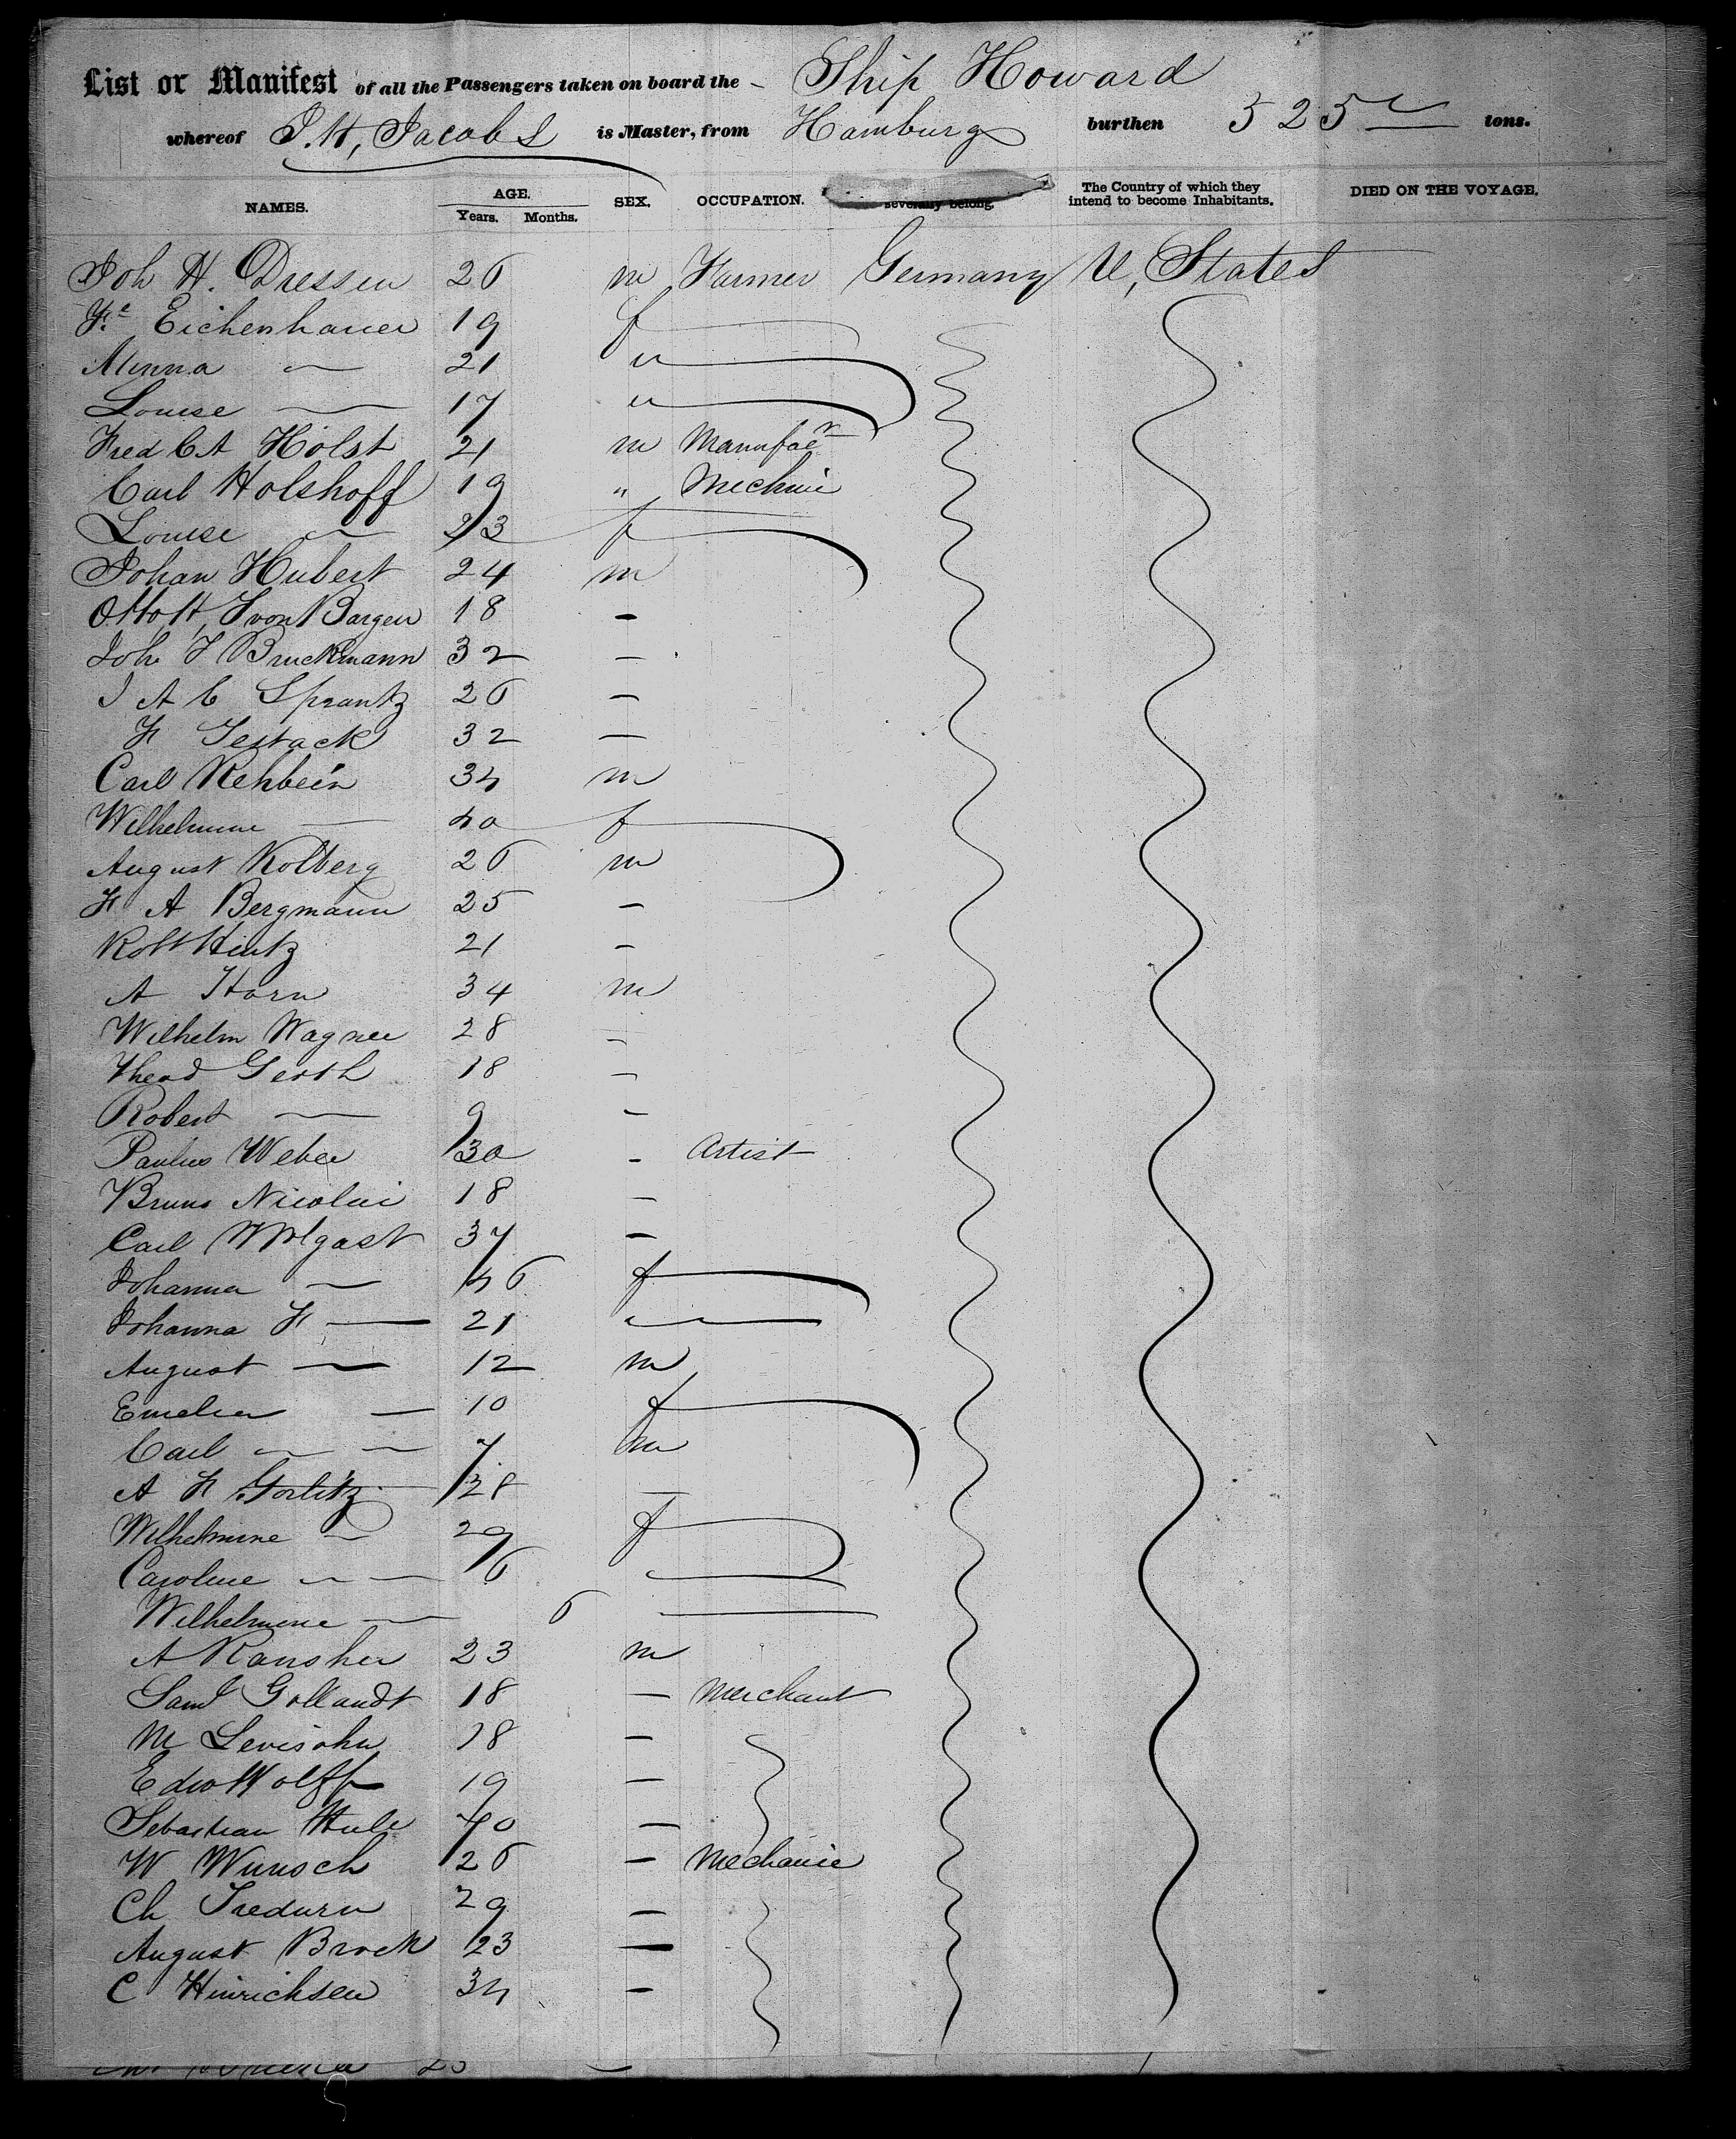 List or Manifest of all the Passengers taken on board the - Ship Howard
whereof J. H, Jacobs is Master, from Hamburg burthen 525 tons.
NAMES. AGE. Years. Months. SEX. OCCUPATION. severally belong. The Country of which they intend to become Inhabitants. DIED ON THE VOYAGE.
Joh H. Dressen 26 m Farmer Germany U, States
Fr Eichenhauer 19 f
Minna — 21 "
Louise — 17 "
Fred C A Holst 21 m Manufacr
Carl Holshoff 19 " Mechnic
Louise — 23 f
Johan Hubert 24 m
Otto H, J von Bargen 18 -
Joh J Bruckmann 32 -
J A C Sprantz 26 -
F Gestack 32 -
Carl Rehbein 34 m
Wilhelmine — 40 f
August Kolberg 26 m
F A Bergmann 25 -
Robt Hintz 21 -
A Horn 34 m
Wilhelm Wagner 28 -
Theod Gerth 18 -
Robert — 9 -
Paulus Weber 30 - Artist
Bruno Nicolai 18 -
Carl Wolgast 37 -
Johanna — 46 f
Johanna F — 21 "
August — 12 m
Emelia — 10 f
Carl — — 7 m
A F Gorlitz 38 -
Wilhelmine — 29 f
Caroline — — 6
Wilhelmine — 6
A Ransher 23 m
Saml Gollandt 18 - Merchant
M Levisohn 18 -
Edw Wolff 19 -
Sebastian 40 -
W Wunsch 26 - Mechanic
Ch 29 -
August Brock 23 -
C Hinrichsen 34 -